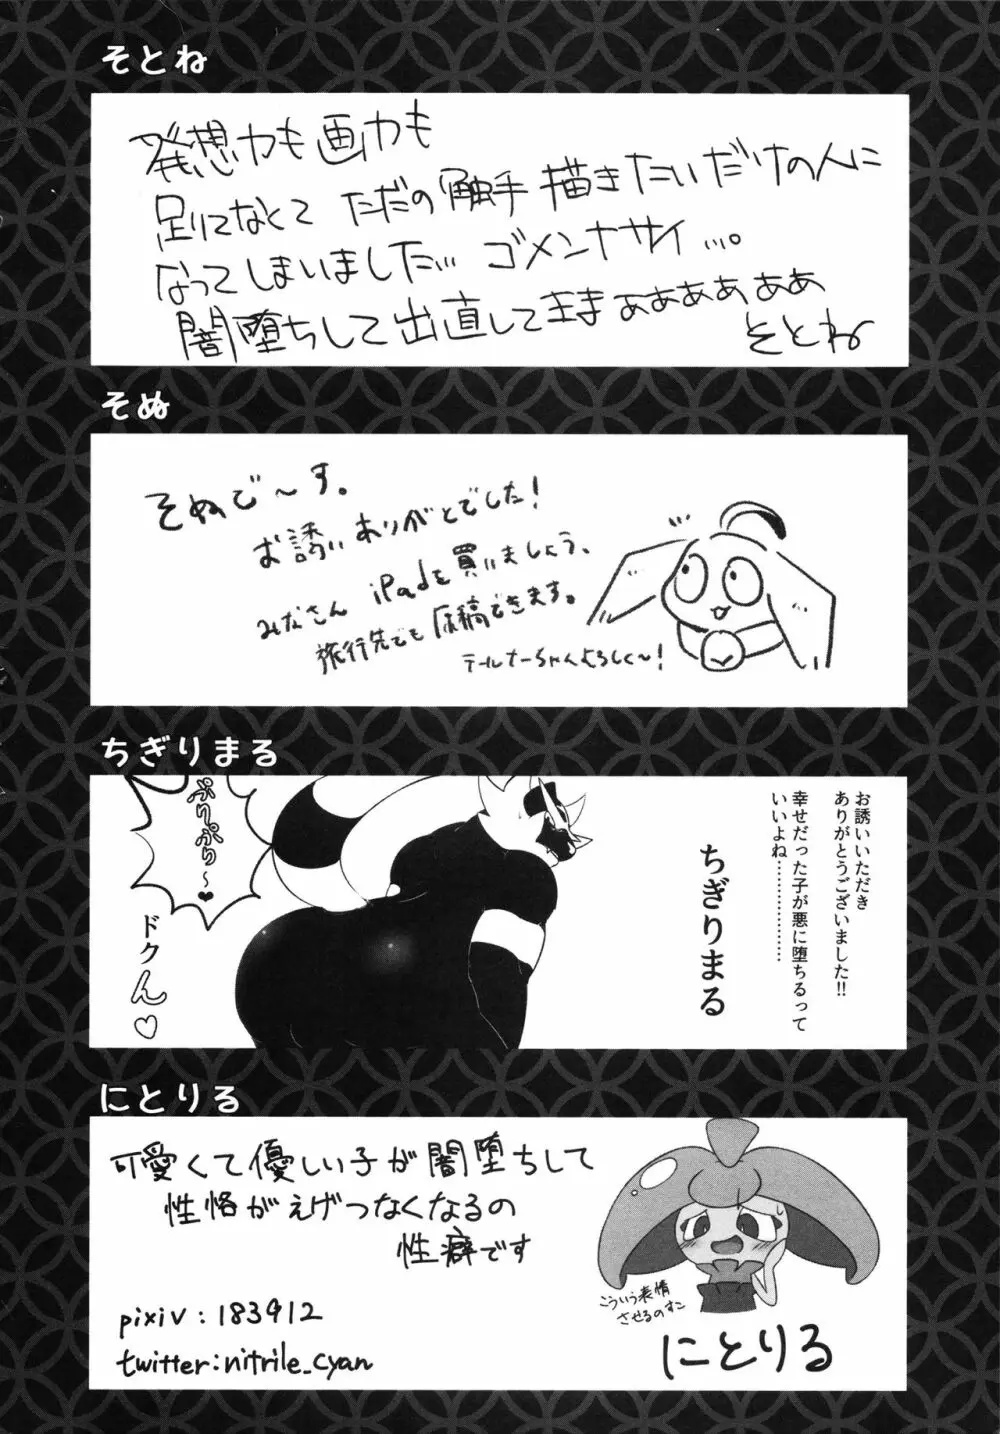 そとね
発想力も画力も
足りてなくて ただの触手 描きたいだけの人に
なってしまいました… ゴメンナサイ…。
闇堕ちして出直してきまぁぁぁぁぁぁ
そとね
そぬ
そぬで〜す。
お誘いありがとでした!
みなさん iPadを買いましょう、
旅行先でも原稿できます。
テールナーちゃんよろしく〜!
ちぎりまる
お誘いいただき
ありがとうございました!!
幸せだった子が悪に堕ちるって
いいよね………………
ちぎりまる
ぷりぷり〜♥
ドクん♡
にとりる
可愛くて優しい子が闇堕ちして
性格がえげつなくなるの
性癖です
こういう表情
させるのすこ
pixiv : 183912
twitter:nitrile_cyan
にとりる